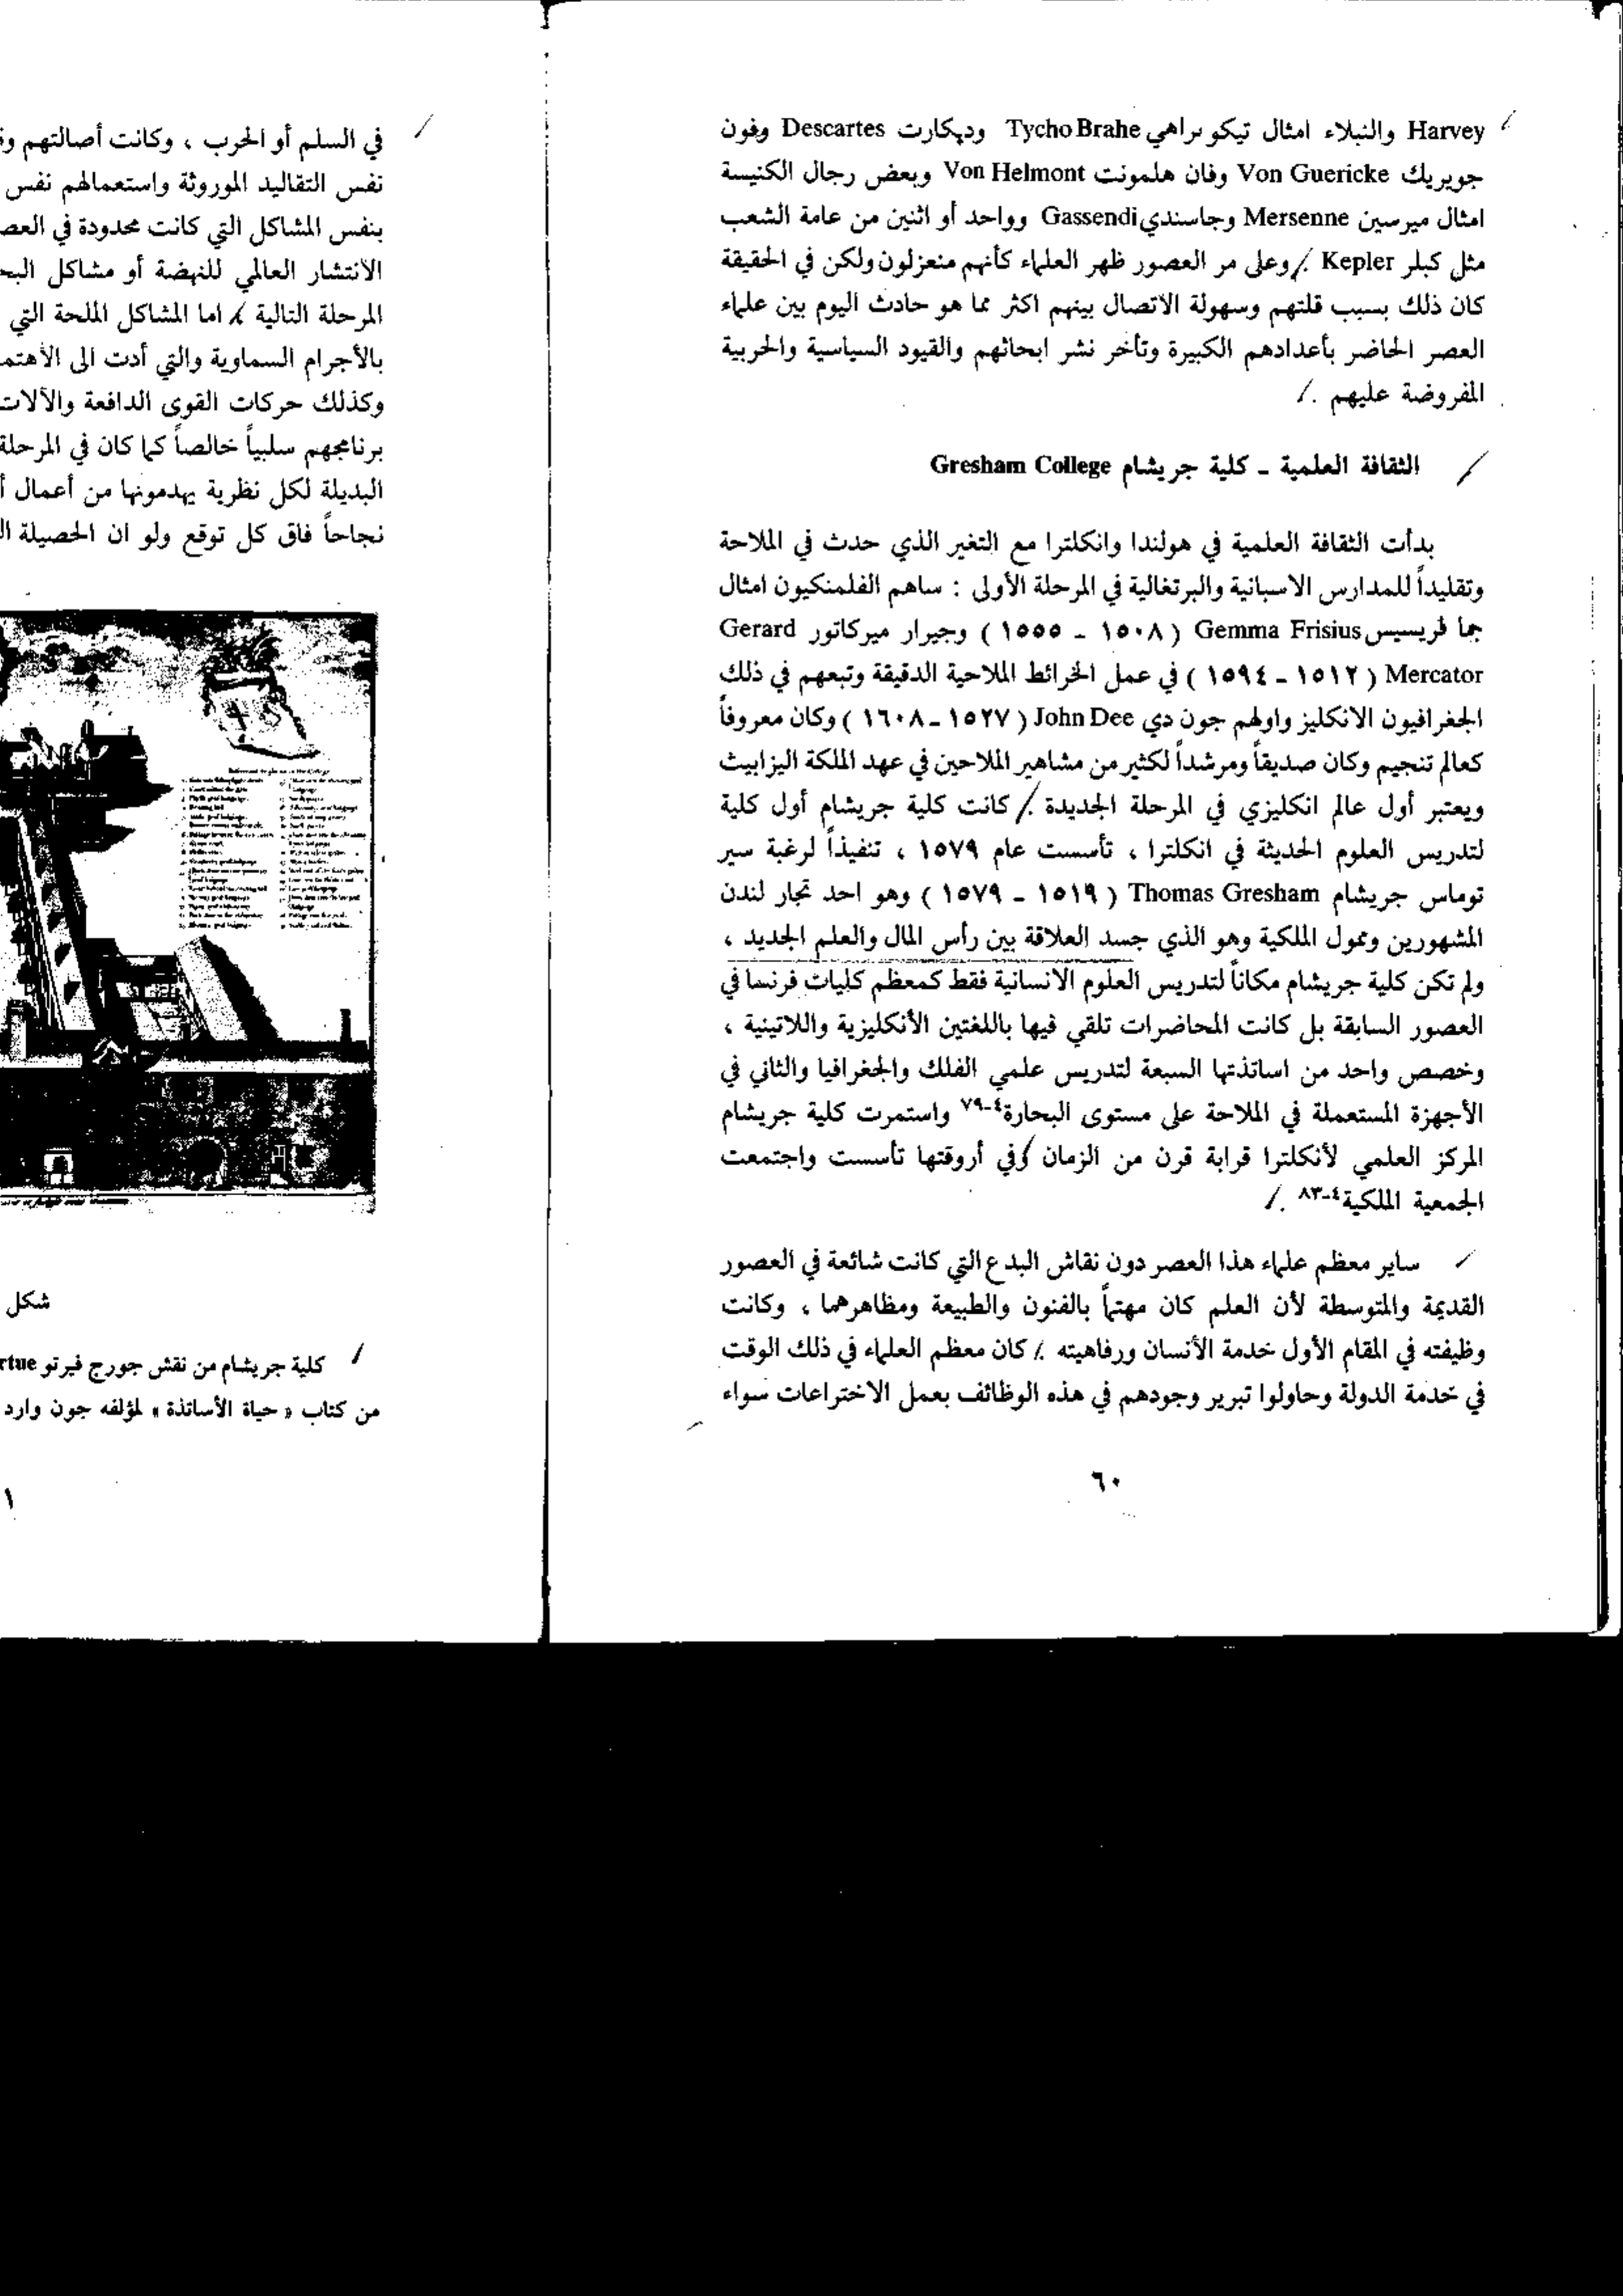 Harvey والنبلاء امثال تيكو براهي Tycho Brahe وديكارت Descartes وفون
جويريك Von Guericke وفان هلمونت Von Helmont وبعض رجال الكنيسة
امثال ميرسين Mersenne وجاسندي Gassendi وواحد أو اثنين من عامة الشعب
مثل كبلر Kepler . وعلى مر العصور ظهر العلماء كأنهم منعزلون ولكن في الحقيقة
كان ذلك بسبب قلتهم وسهولة الاتصال بينهم اكثر مما هو حادث اليوم بين علماء
العصر الحاضر بأعدادهم الكبيرة وتأخر نشر ابحاثهم والقيود السياسية والحربية
المفروضة عليهم .
الثقافة العلمية ـ كلية جريشام Gresham College
بدأت الثقافة العلمية في هولندا وانكلترا مع التغير الذي حدث في الملاحة
وتقليداً للمدارس الاسبانية والبرتغالية في المرحلة الأولى : ساهم الفلمنكيون امثال
جما فريسيس Gemma Frisius ( ١٥٠٨ ـ ١٥٥٥ ) وجيرار ميركاتور Gerard
Mercator ( ١٥١٢ ـ ١٥٩٤ ) في عمل الخرائط الملاحية الدقيقة وتبعهم في ذلك
الجغرافيون الانكليز واولهم جون دي John Dee ( ١٥٢٧ ـ ١٦٠٨ ) وكان معروفاً
كعالم تنجيم وكان صديقاً ومرشداً لكثير من مشاهير الملاحين في عهد الملكة اليزابيث
ويعتبر أول عالم انكليزي في المرحلة الجديدة . كانت كلية جريشام أول كلية
لتدريس العلوم الحديثة في انكلترا ، تأسست عام ١٥٧٩ ، تنفيذاً لرغبة سير
توماس جريشام Thomas Gresham ( ١٥١٩ ـ ١٥٧٩ ) وهو احد تجار لندن
المشهورين وممول الملكية وهو الذي جسد العلاقة بين رأس المال والعلم الجديد ،
ولم تكن كلية جريشام مكاناً لتدريس العلوم الانسانية فقط كمعظم كليات فرنسا في
العصور السابقة بل كانت المحاضرات تلقي فيها باللغتين الأنكليزية واللاتينية ،
وخصص واحد من اساتذتها السبعة لتدريس علمي الفلك والجغرافيا والثاني في
الأجهزة المستعملة في الملاحة على مستوى البحارة٤-٧٩ واستمرت كلية جريشام
المركز العلمي لأنكلترا قرابة قرن من الزمان وفي أروقتها تأسست واجتمعت
الجمعية الملكية٤-٨٣ .
ساير معظم علماء هذا العصر دون نقاش البدع التي كانت شائعة في العصور
القديمة والمتوسطة لأن العلم كان مهتماً بالفنون والطبيعة ومظاهرهما ، وكانت
وظيفته في المقام الأول خدمة الأنسان ورفاهيته . كان معظم العلماء في ذلك الوقت
في خدمة الدولة وحاولوا تبرير وجودهم في هذه الوظائف بعمل الاختراعات سواء
٦٠
في السلم أو الحرب ، وكانت أصالتهم
نفس التقاليد الموروثة واستعمالهم نفس
بنفس المشاكل التي كانت محدودة في
الأنتشار العالمي للنهضة أو مشاكل
المرحلة التالية . اما المشاكل الملحة التي
بالأجرام السماوية والتي أدت الى
وكذلك حركات القوى الدافعة والآلات
برنامجهم سلبياً خالصاً كما كان في المرحلة
البديلة لكل نظرية يهدمونها من أعمال
نجاحاً فاق كل توقع ولو ان الحصيلة
شكل
كلية جريشام من نقش جورج فيرتو
من كتاب « حياة الأساتذة » لمؤلفه جون وارد